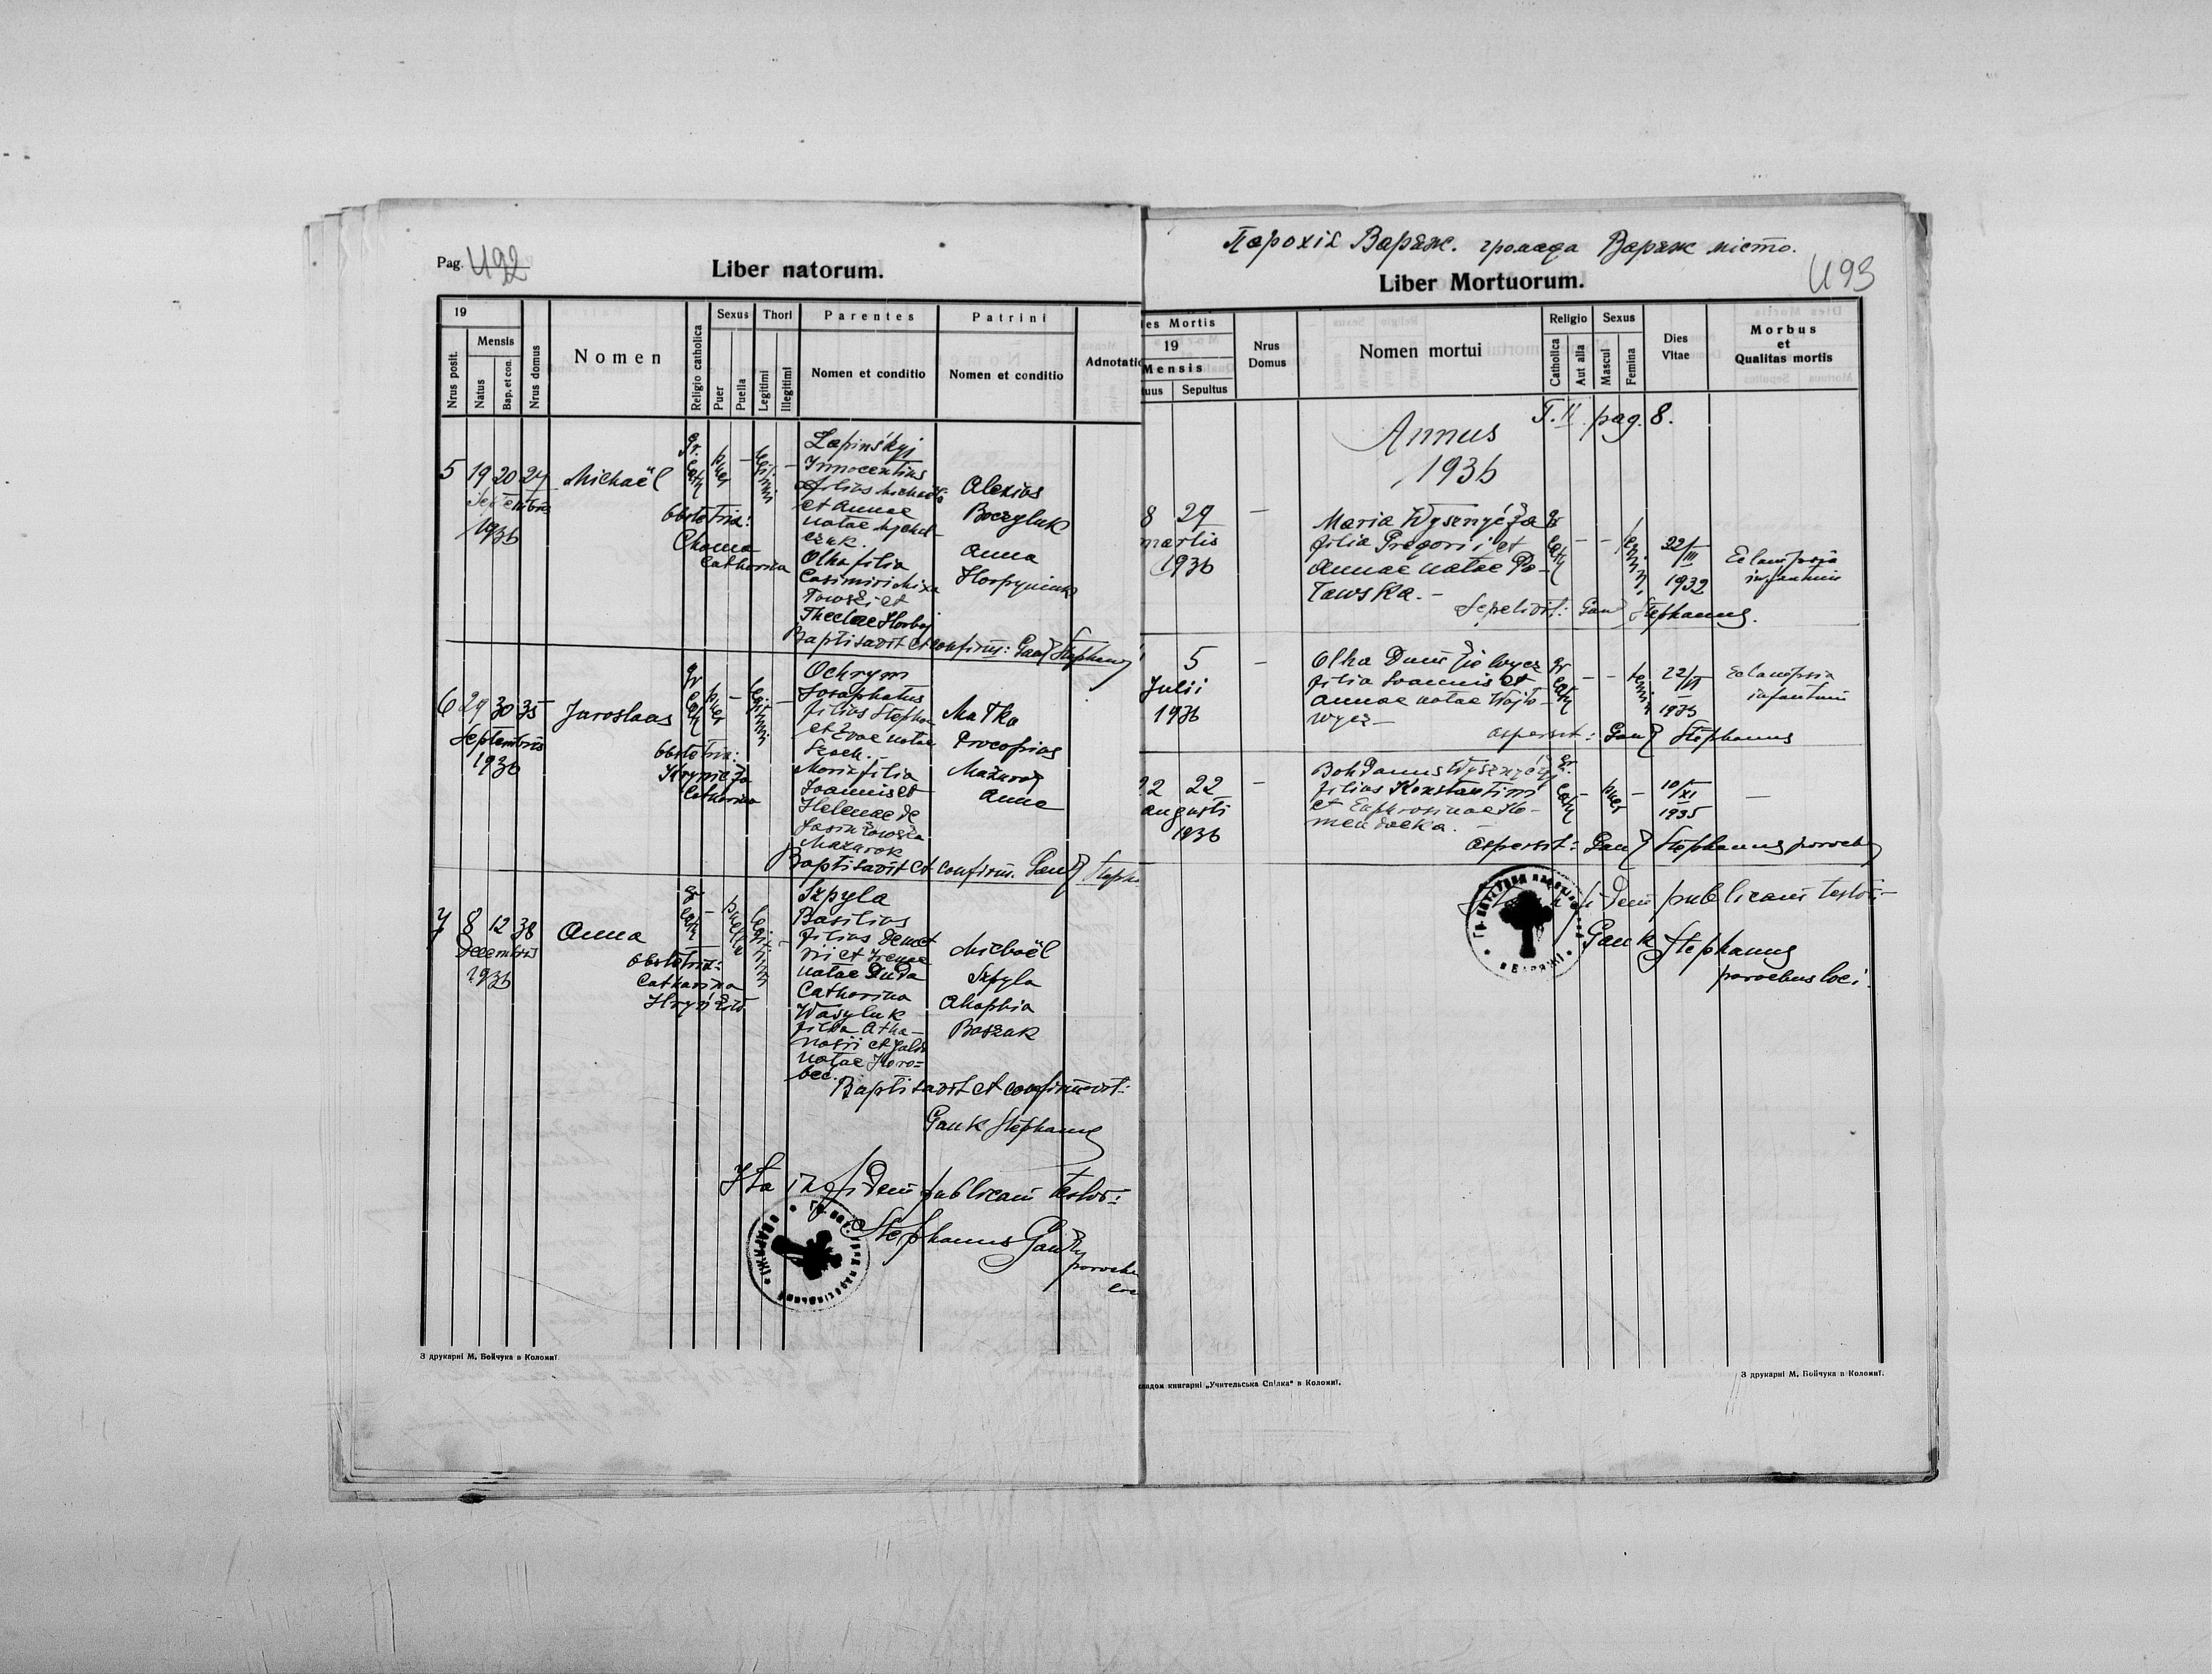 Pag. 492
Liber natorum.
19
Mensis
Nrus posit.
Natus
Bap. et con.
Nrus domus
Nomen
Religio catholica
Sexus
Puer
Puella
Thori
Legitimi
Illegitimi
Parentes
Nomen et conditio
Patrini
Nomen et conditio
Adnotatio
5 19 20 24 Michaël
Septembris
1936
gr. cath puer – legitimi –
obstetrix:
Choma
Catherina
Łapinśkyj
Innocentius
filius Michaelis
et Annae
natae
czuk.
Olha filia
Casimiri
et
Theclae Horbaj
Alexius
Boczyluk
Anna
Baptisavit et confirm: Gauk Stephanus
6 29 30 35 Jaroslaus
Septembris
1936
gr cath puer – legitimi –
obstetrix:
Catherina
Ochrym
Josaphatus
filius Stephani
et Evae natae
Szach.
Maria filia
Joannis et
Helenae de
Mazurok
Matko
Procopius
Mazurok
Anna
Baptisavit et confirm. Gauk Steph
7 8 12 38 Anna
Decembris
1936
gr cath – puella legitimi –
obstetrix:
Catharina
Szpyla
Basilius
filius Demet
rii et Irenae
natae Duda
Catharina
Wasyluk
filia Atha–
nasii et
natae Horo=
bec.
Michaël
Szpyla
Ahaphia
Boszak
Baptisavit et confirmavit:
Gauk Stephanus
Ita in fidem publicam testor:
Stephanus Gauk
parochus
loci
З друкарні М. Бойчука в Коломиї.
Парохія Варяж. громада Варяж місто.
493
Liber Mortuorum.
ies Mortis
19
Mensis
tuus
Sepultus
Nrus
Domus
Nomen mortui
Religio
Catholica
Aut alia
Sexus
Mascul
Femina
Dies
Vitae
Morbus
et
Qualitas mortis
T. II pag. 8.
Annus
1936
8 29 –
martis
1936
Maria Wysznyćka
filia Gregorii et
Annae natae Po–
ławska. –
gr cath – – femin.
22/III
1932
Eclampsia
infantum
Sepelivit: Gauk Stephanus.
5 –
Julii
1936
filia Joannis et
Annae natae Wojto–
wycz –
gr cath – – femin
22/VI
1936
Eclampsia
infantum
aspersit: Gauk Stephanus
22 22 –
augusti
1936
Bohdanus Wysznyćkyj
filius Konstantini
et Euphrosinae Ho–
mendocka.
gr. cath – puer –
10/XI
1935
–
aspersit: Gauk Stephanus paroch
fidem publicam testor:–
Gauk Stephanus
parochus loci.
ладом книгарні „Учительська Спілка" в Коломиї.
З друкарні М. Бойчука в Коломиї.